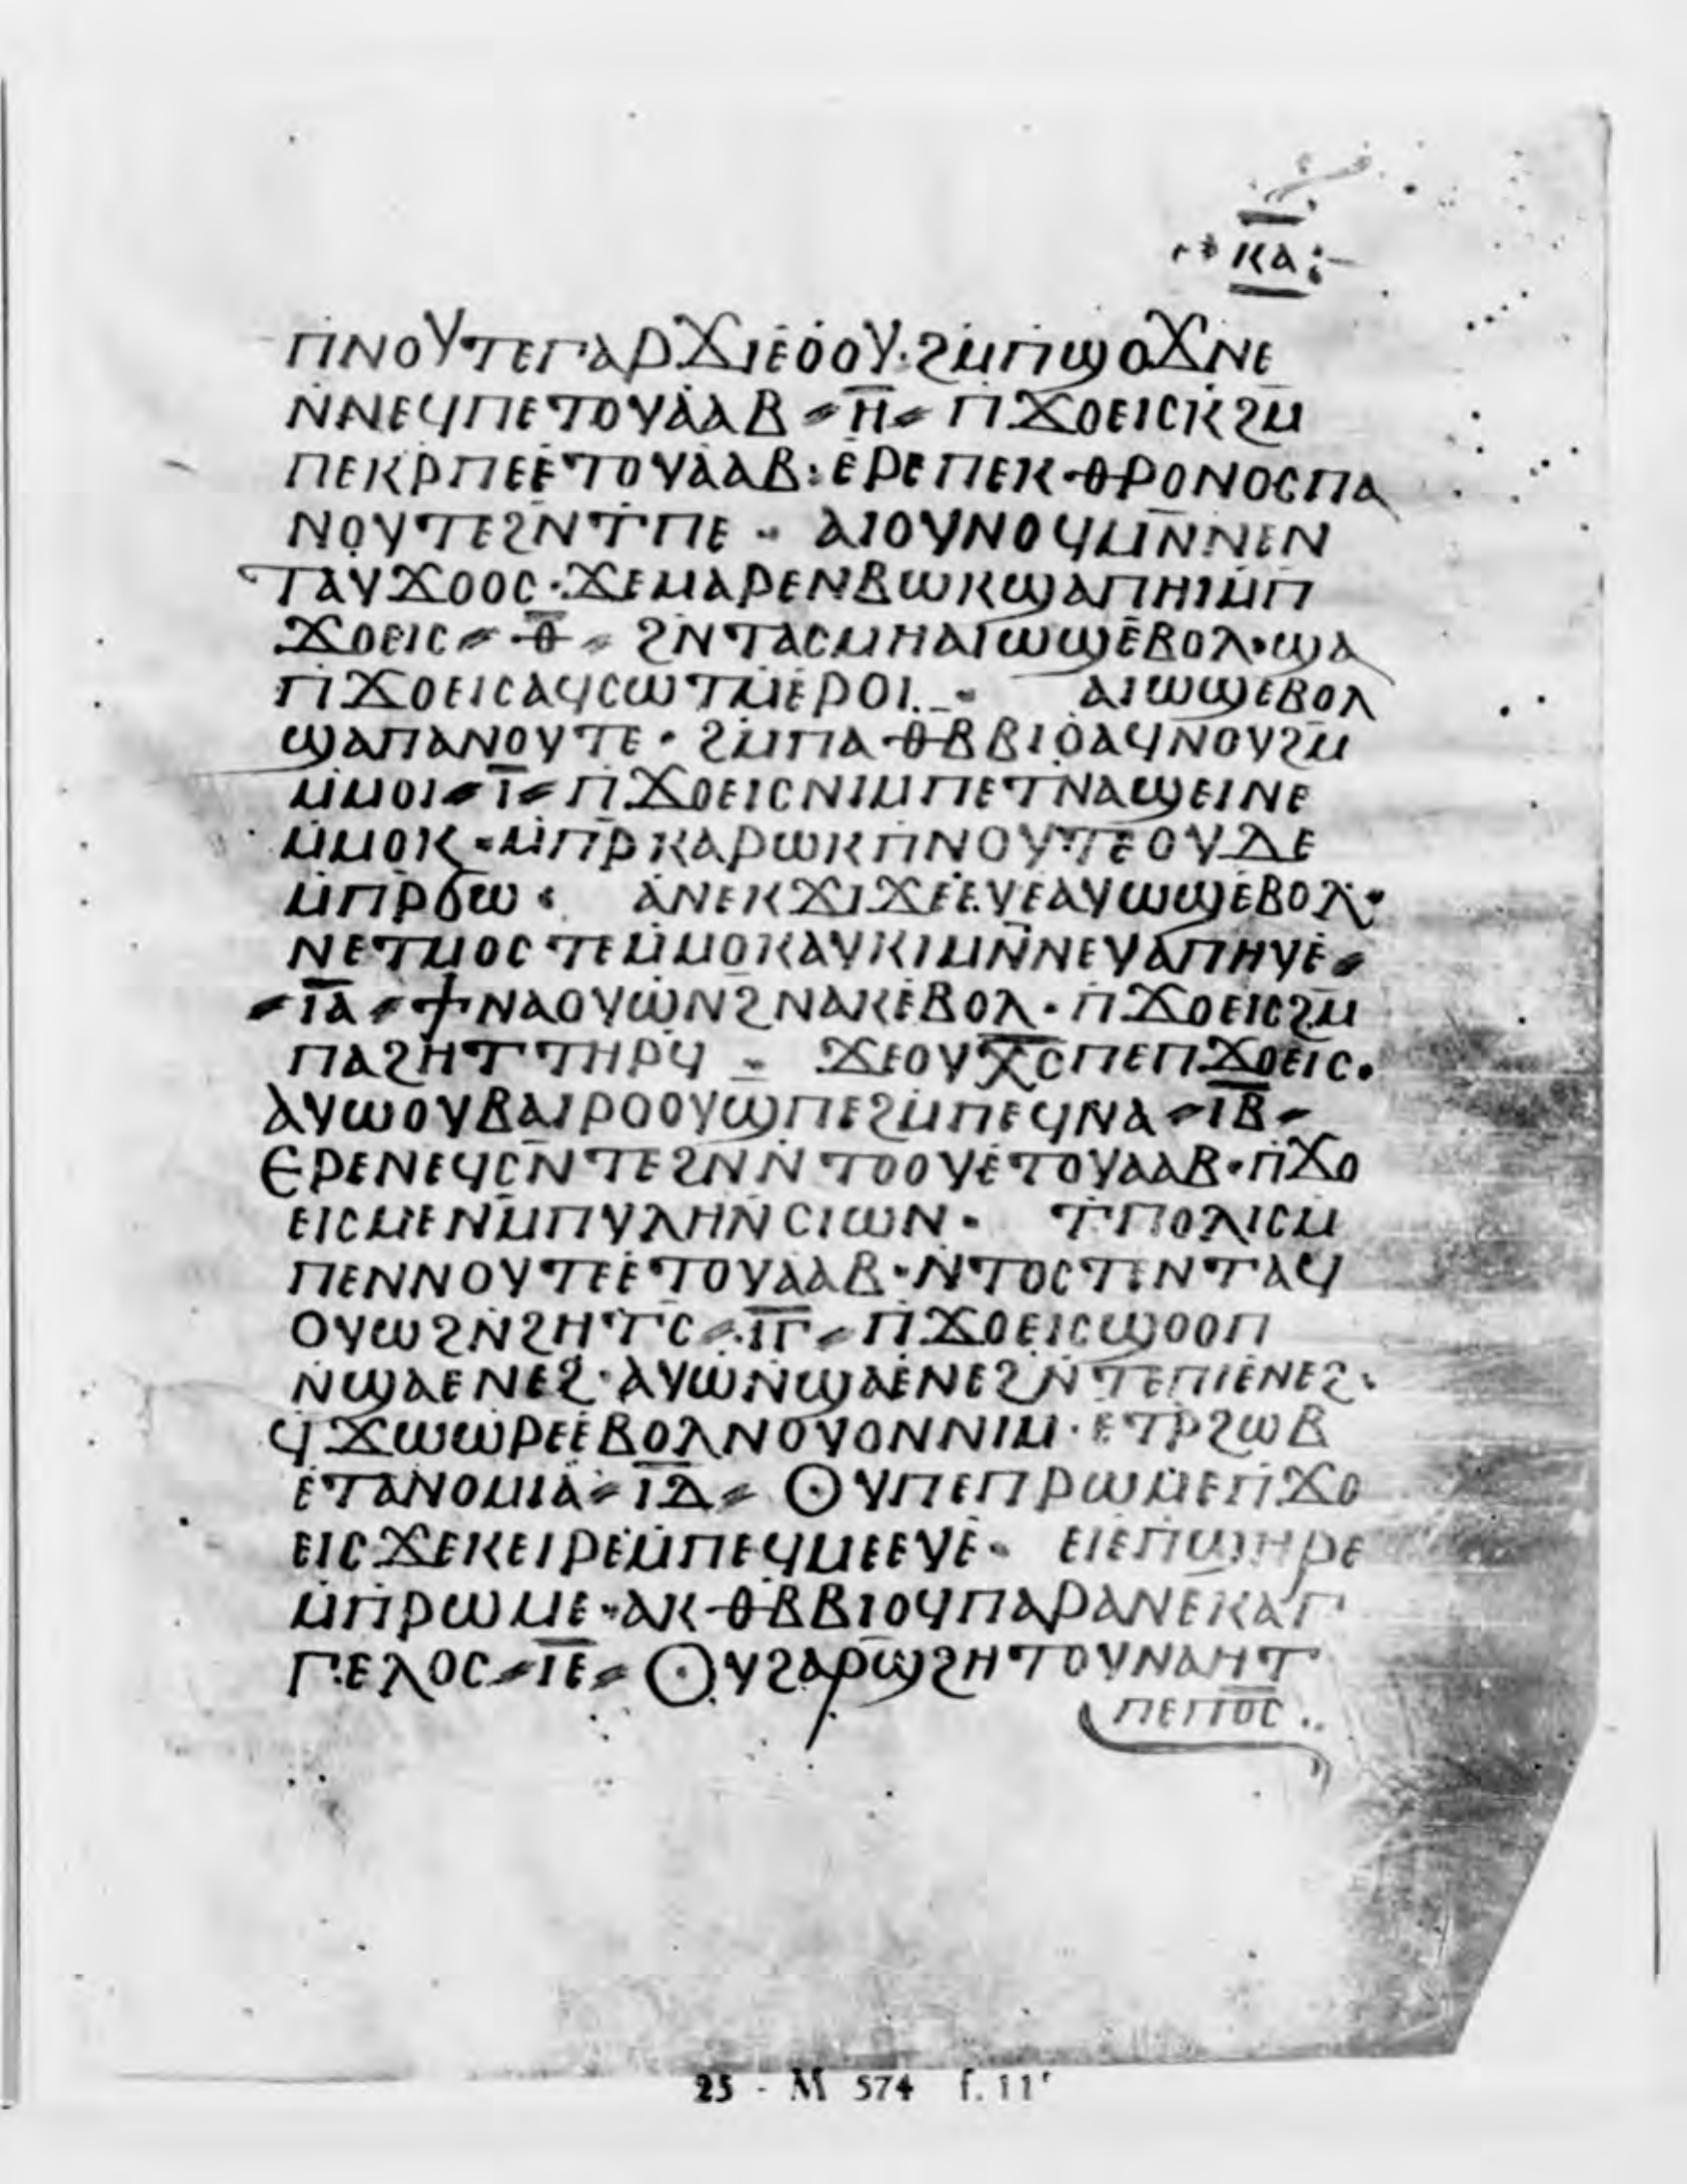 ⲕⲁ
ⲡⲛⲟⲩⲧⲉⲅⲁⲣϫⲓⲉⲟⲟⲩ·ϩⲙⲡϣⲟϫⲛⲉ
ⲛⲛⲉϥⲡⲉⲧⲟⲩⲁⲁⲃ ⲏ̅ ⲡϫⲟⲉⲓⲥⲕϩⲙ
ⲡⲉⲕⲣⲡⲉⲉⲧⲟⲩⲁⲁⲃ:ⲉⲣⲉⲡⲉⲕⲑⲣⲟⲛⲟⲥⲡⲁ
ⲛⲟⲩⲧⲉϩⲛⲧⲡⲉ - ⲁⲓⲟⲩⲛⲟϥⲙⲛⲛⲉⲛ
ⲧⲁⲩϫⲟⲟⲥ·ϫⲉⲙⲁⲣⲉⲛⲃⲱⲕϣⲁⲡⲏⲓⲙⲡ
ϫⲟⲉⲓⲥ ⲑ̅ ϩⲛⲧⲁⲥⲙⲏⲁⲓⲱϣⲉⲃⲟⲗ·ϣⲁ
ⲡϫⲟⲉⲓⲥⲁϥⲥⲱⲧⲙⲉⲣⲟⲓ.- ⲁⲓⲱϣⲉⲃⲟⲗ
ϣⲁⲡⲁⲛⲟⲩⲧⲉ·ϩⲙⲡⲁⲑⲃⲃⲓⲟⲁϥⲛⲟⲩϩⲙ
ⲙⲙⲟⲓ ⲓ̅ ⲡϫⲟⲉⲓⲥⲛⲓⲙⲡⲉⲧⲛⲁϣⲉⲓⲛⲉ
ⲙⲙⲟⲕ-ⲙⲡⲣⲕⲁⲣⲱⲕⲡⲛⲟⲩⲧⲉⲟⲩⲇⲉ
ⲙⲡⲣϭⲱ· ⲁⲛⲉⲕϫⲓϫⲉⲉⲩⲉⲁⲩⲱϣⲉⲃⲟⲗ·
ⲛⲉⲧⲙⲟⲥⲧⲉⲙⲙⲟⲕⲁⲩⲕⲓⲙⲛⲛⲉⲩⲁⲡⲏⲩⲉ
ⲓ̅ⲁ̅ ϯⲛⲁⲟⲩⲱⲛϩⲛⲁⲕⲉⲃⲟⲗ·ⲡϫⲟⲉⲓⲥϩⲙ
ⲡⲁϩⲏⲧⲧⲏⲣϥ - ϫⲉⲟⲩⲭ̅ⲥ̅ⲡⲉⲡϫⲟⲉⲓⲥ.
ⲁⲩⲱⲟⲩⲃⲁⲓⲣⲟⲟⲩϣⲡⲉϩⲙⲡⲉϥⲛⲁ ⲓ̅ⲃ̅
ⲉⲣⲉⲛⲉϥⲥⲛⲧⲉϩⲛⲛⲧⲟⲟⲩⲉⲧⲟⲩⲁⲁⲃ·ⲡϫⲟ
ⲉⲓⲥⲙⲉⲛⲙⲡⲩⲗⲏⲛⲥⲓⲱⲛ- ⲧⲡⲟⲗⲓⲥⲙ
ⲡⲉⲛⲛⲟⲩⲧⲉⲉⲧⲟⲩⲁⲁⲃ·ⲛⲧⲟⲥⲧⲉⲛⲧⲁϥ
ⲟⲩⲱϩⲛϩⲏⲧⲥ ⲓ̅ⲅ̅ ⲡϫⲟⲉⲓⲥϣⲟⲟⲡ
ⲛϣⲁⲉⲛⲉϩ·ⲁⲩⲱⲛϣⲁⲉⲛⲉϩⲛⲧⲉⲡⲓⲉⲛⲉϩ·
ϥϫⲱⲱⲣⲉⲉⲃⲟⲗⲛⲟⲩⲟⲛⲛⲓⲙ·ⲉⲧⲣϩⲱⲃ
ⲉⲧⲁⲛⲟⲙⲓⲁ ⲓ̅ⲇ̅ ⲟⲩⲡⲉⲡⲣⲱⲙⲉⲡϫⲟ
ⲉⲓⲥϫⲉⲕⲉⲓⲣⲉⲙⲡⲉϥⲙⲉⲉⲩⲉ- ⲉⲓⲉⲡϣⲏⲣⲉ
ⲙⲡⲣⲱⲙⲉ-ⲁⲕⲑⲃⲃⲓⲟϥⲡⲁⲣⲁⲛⲉⲕⲁⲅ
ⲅⲉⲗⲟⲥ ⲓ̅ⲉ̅ ⲟⲩϩⲁⲣϣϩⲏⲧⲟⲩⲛⲁⲏⲧ
ⲡⲉⲡⲟ̅ⲥ̅..
25 - M 574 f. 11ʳ